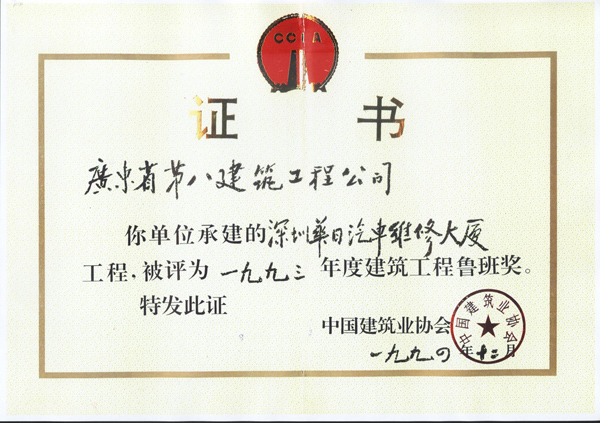 CCIA
证 书
廣东省第八建筑工程公司
你单位承建的深圳華日汽車維修大厦
工程，被评为一九九三年度建筑工程鲁班奖。
特发此证
中国建筑业协会
中国建筑业协会
一九九四年十二月